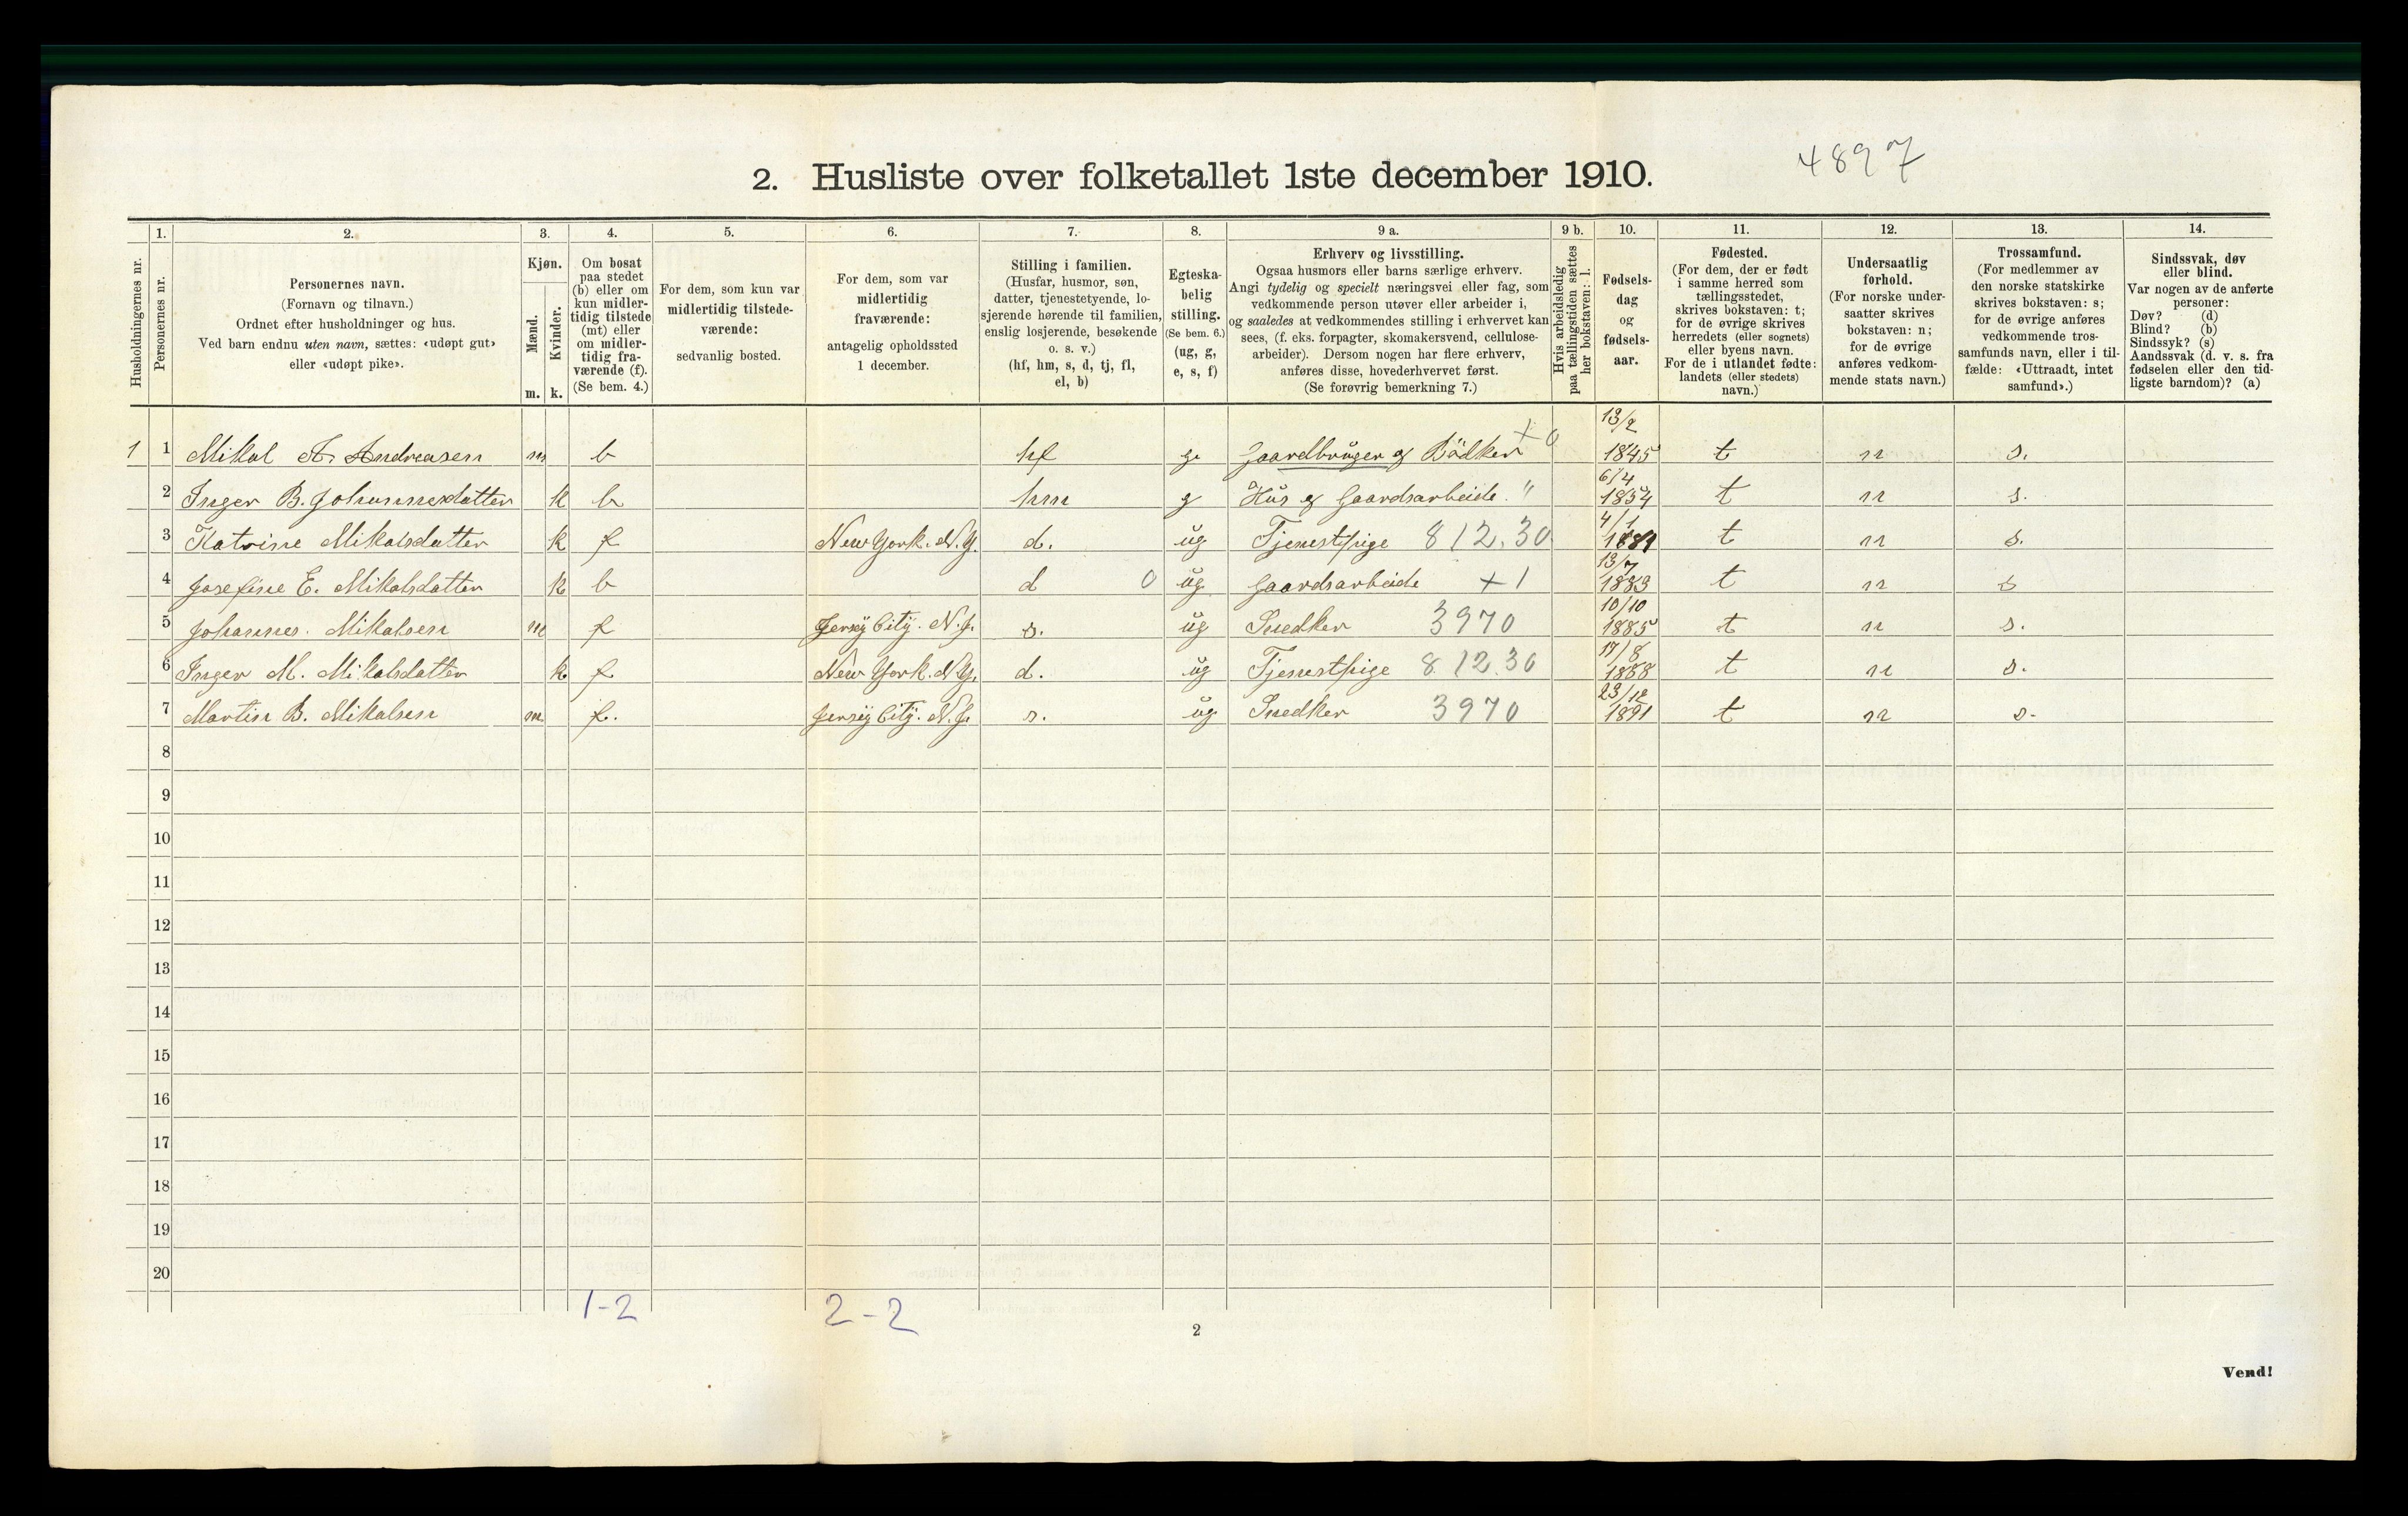 4897
2. Husliste over folketallet 1ste december 1910.
Husholdningernes nr.
1.
Personernes nr.
2.
Personernes navn.
(Fornavn og tilnavn.)
Ordnet efter husholdninger og hus.
Ved barn endnu uten navn, sættes: «udøpt gut»
eller «udøpt pike».
3.
Kjøn.
Mænd.
m.
Kvinder.
k.
4.
Om bosat
paa stedet
(b) eller om
kun midler-
tidig tilstede
(mt) eller
om midler-
tidig fra-
værende (f).
(Se bem. 4.)
5.
For dem, som kun var
midlertidig tilstede-
værende:
sedvanlig bosted.
6.
For dem, som var
midlertidig
fraværende:
antagelig opholdssted
1 december.
7.
Stilling i familien.
(Husfar, husmor, søn,
datter, tjenestetyende, lo-
sjerende hørende til familien,
enslig losjerende, besøkende
o. s. v.)
(hf, hm, s, d, tj, fl,
el, b)
8.
Egteska-
belig
stilling.
(Se bem. 6.)
(ug, g,
e, s, f)
9 a.
Erhverv og livsstilling.
Ogsaa husmors eller barns særlige erhverv.
Angi tydelig og specielt næringsvei eller fag, som
vedkommende person utøver eller arbeider i,
og saaledes at vedkommendes stilling i erhvervet kan
sees, (f. eks. forpagter, skomakersvend, cellulose-
arbeider). Dersom nogen har flere erhverv,
anføres disse, hovederhvervet først.
(Se forøvrig bemerkning 7.)
9 b.
Hvis arbeidsledig
paa tællingstiden sættes
her bokstaven: l.
10.
Fødsels-
dag
og
fødsels-
aar.
11.
Fødested.
(For dem, der er født
i samme herred som
tællingsstedet,
skrives bokstaven: t;
for de øvrige skrives
herredets (eller sognets)
eller byens navn.
For de i utlandet fødte:
landets (eller stedets)
navn.)
12.
Undersaatlig
forhold.
(For norske under-
saatter skrives
bokstaven: n;
for de øvrige
anføres vedkom-
mende stats navn.)
13.
Trossamfund.
(For medlemmer av
den norske statskirke
skrives bokstaven: s;
for de øvrige anføres
vedkommende tros-
samfunds navn, eller i til-
fælde: «Uttraadt, intet
samfund».)
14.
Sindssvak, døv
eller blind.
Var nogen av de anførte
personer:
Døv? (d)
Blind? (b)
Sindssyk? (s)
Aandssvak (d. v. s. fra
fødselen eller den tid-
ligste barndom)? (a)
1 1 Mikal A. Andreasen m b hf g. Gaardbruger og Bödker + 0 13/2 1845 t n s.
2 Inger B. Johannesdatter k b hm g Hus og Gaardsarbeide. " 6/4 1854 t n s.
3 Katrine Mikalsdatter k f New York. N.Y. d. ug Tjenestpige 812.30 4/1 1881 t n s.
4 Josefine E. Mikalsdatter k b d 0 ug Gaardsarbeide + 1 13/7 1883 t n s
5 Johannes. Mikalsen m f Jersey City. N.J. s. ug Snedker 3970 10/10 1885 t n s.
6 Inger M. Mikalsdatter k f New York. N.Y. d. ug Tjenestpige 812.30 17/8 1888 t n s.
7 Martin B. Mikalsen m f. Jersey City. N.J. s. ug Snedker 3970 23/12 1891 t n s.
8
9
10
11
12
13
14
15
16
17
18
19
20
1-2 2-2
2
Vend!